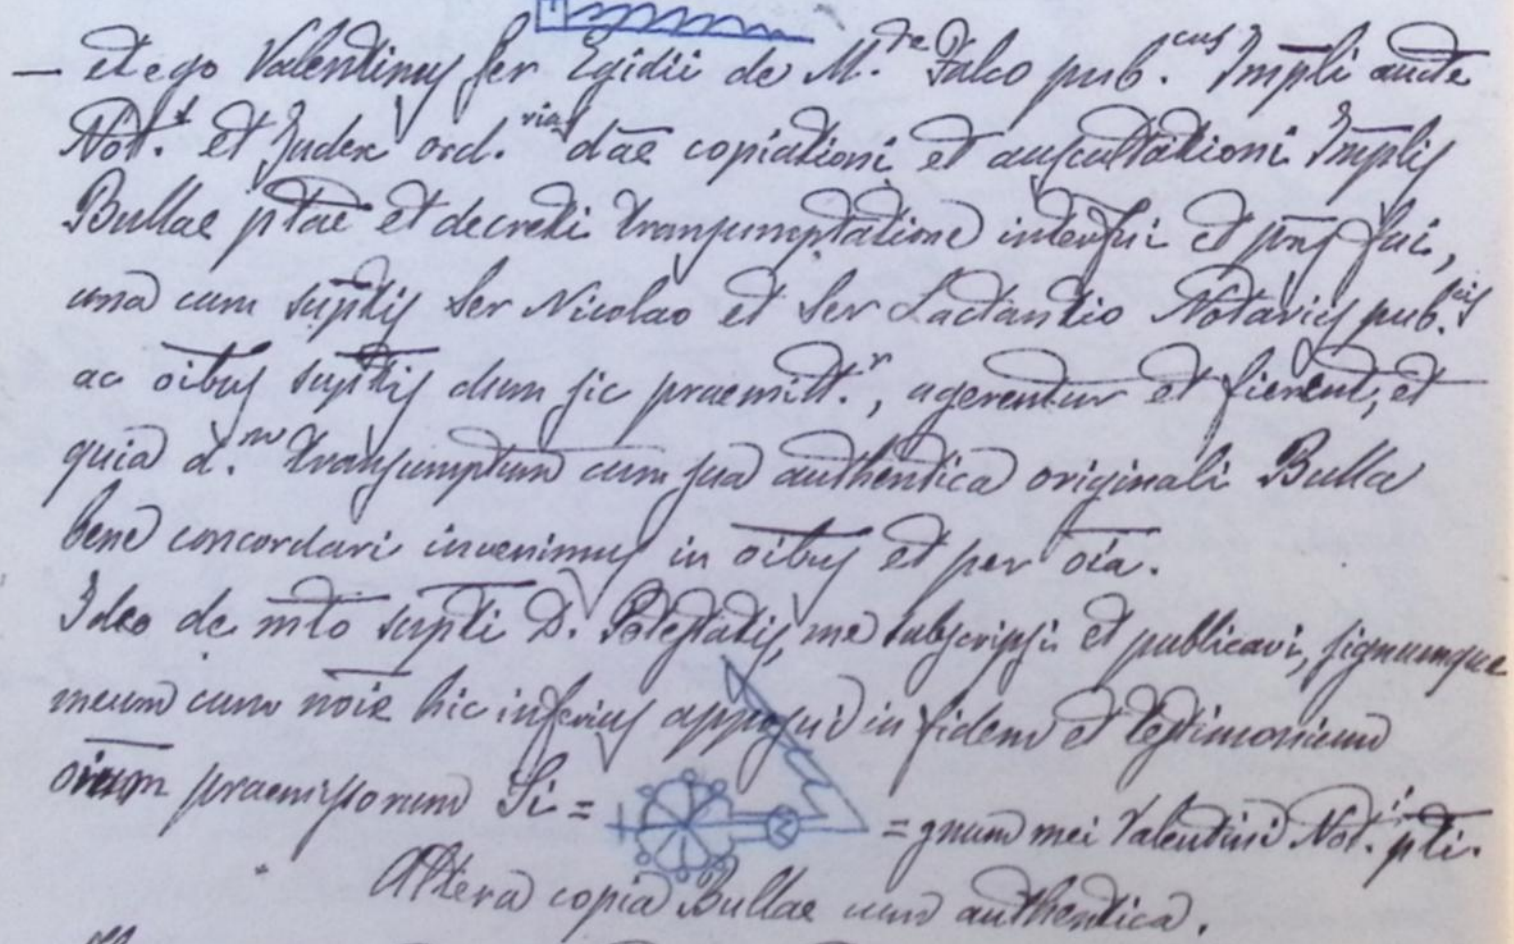 — et ego Valentinus ser Egidii de M.te Falco pub.cus Impli aucte
Not.s et Judex ord.rius dae copiationi et auscultationi Implis
Bullae ptae et decreti transumptatione interfui et pns fui,
una cum suptis ser Nicolao et ser Lactantio Notariis pub.cis
ac oibus suptis dum sic praemitt.r, agerentur et fierent, et
quia d.m transumptum cum sua authentica originali Bulla
bene concordari invenimus in oibus et per oia.
Ideo de mto supti D. Potestatis, me subscripsi et publicavi, signumque
meum cum noie hic inferius apposui in fidem et testimonium
oium praemissorum Si=
=gnum mei Valentini Not.ii pti.
Altera copia Bullae cum authentica.